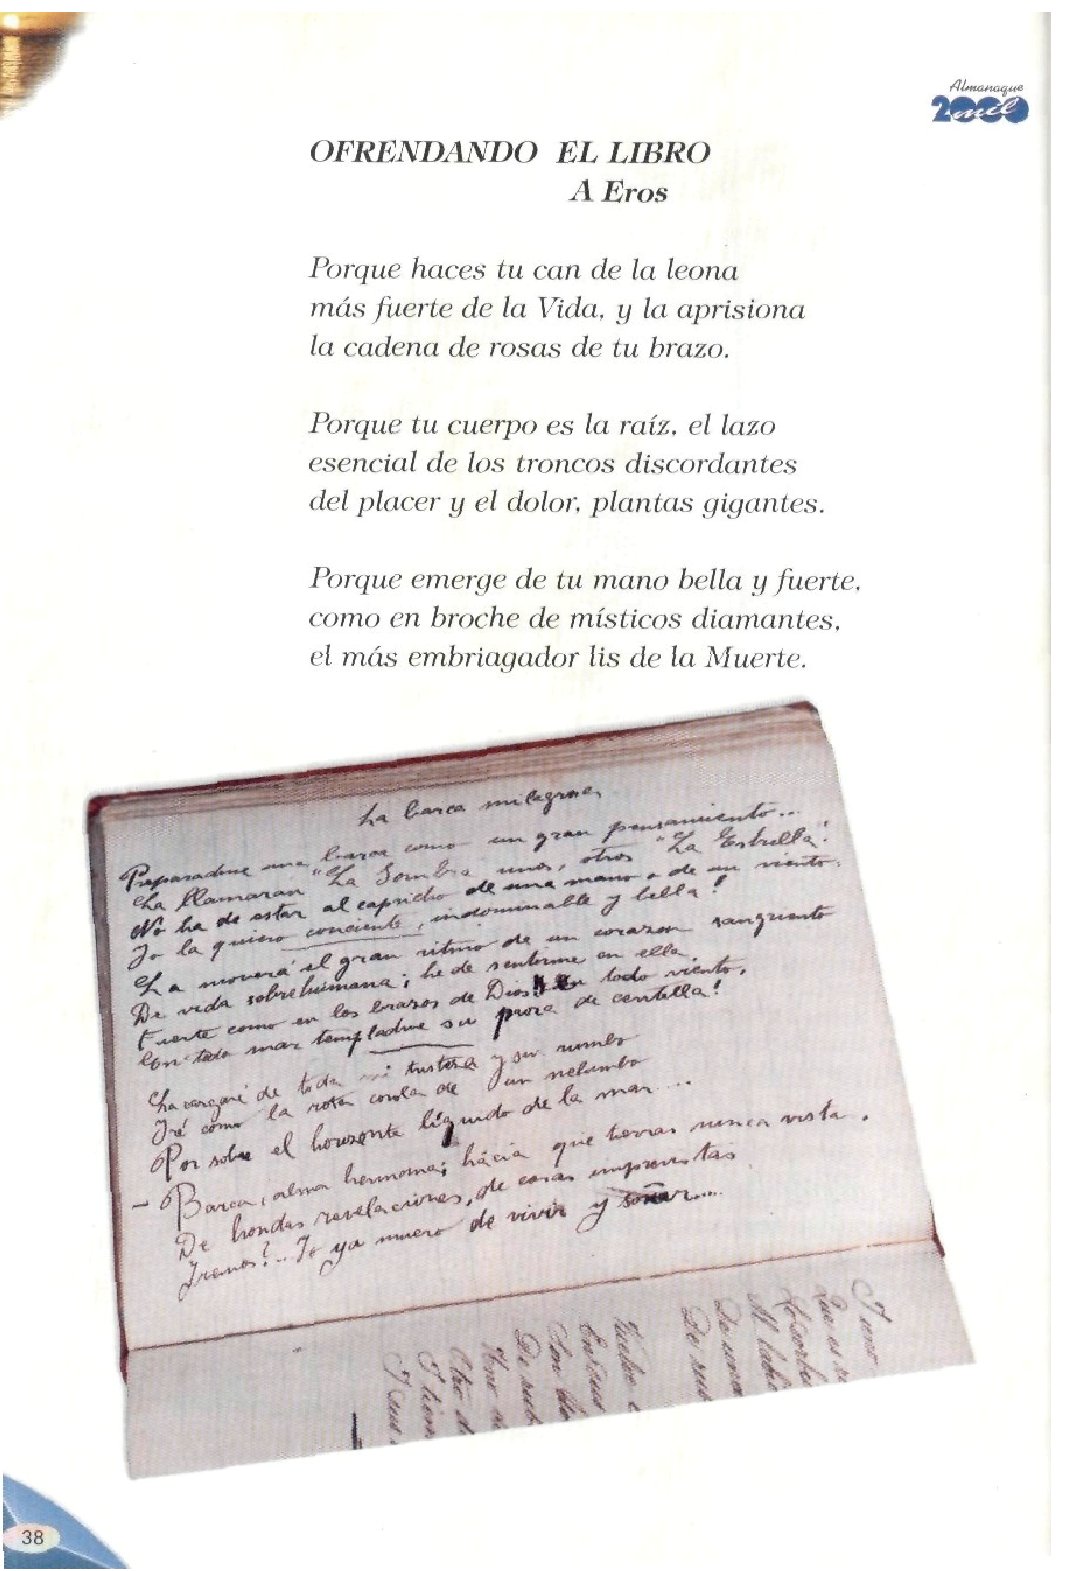 Almanaque
2000 mil
OFRENDANDO EL LIBRO
A Eros
Porque haces tu can de la leona
más fuerte de la Vida, y la aprisiona
la cadena de rosas de tu brazo.
Porque tu cuerpo es la raíz, el lazo
esencial de los troncos discordantes
del placer y el dolor, plantas gigantes.
Porque emerge de tu mano bella y fuerte,
como en broche de místicos diamantes,
el más embriagador lis de la Muerte.
La barca milagrosa
Preparadme una barca como un gran pensamiento...
La llamarán "La Sombra" unos, otros "La Estrella".
No ha de estar al capricho de una mano o de un viento:
Yo la quiero conciente, indominable y bella!
La moverá el gran ritmo de un corazon sangriento
De vida sobrehumana; he de sentirme en ella
Fuerte como en los brazos de Dios! En todo viento,
En todo mar templadme su proa de centella!
La cargaré de toda mi tristeza y sin rumbo
Iré como la rota corola de un nelumbo
Por sobre el horizonte líquido de la mar...
– Barca, alma hermana; hácia que tierras nunca vistas,
De hondas revelaciones, de cosas imprevistas
Iremos?.. Yo ya muero de vivir y soñar....
38